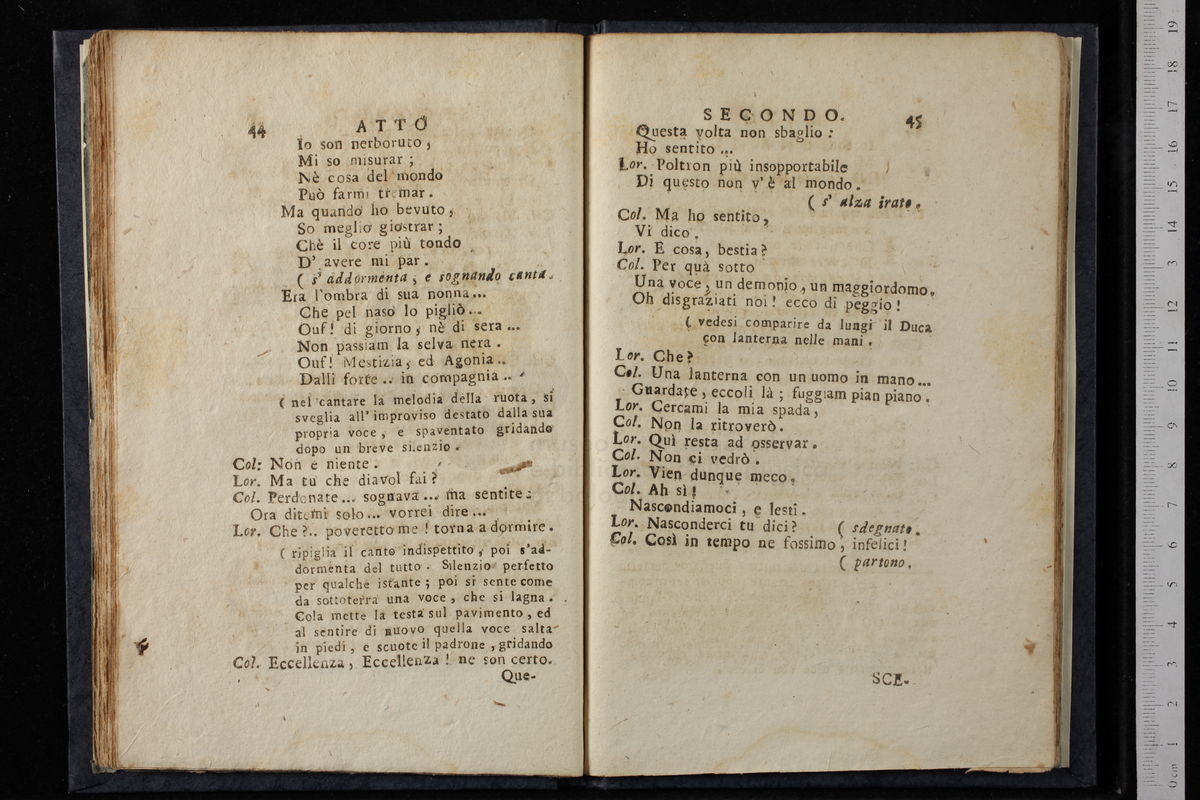 44 ATTO
Io son nerboruto,
Mi so misurar;
Nè cosa del mondo
Può farmi tremar.
Ma quando ho bevuto,
So meglio giostrar;
Chè il core più tondo
D' avere mi par.
( s' addormenta, e sognando canta.
Era l'ombra di sua nonna...
Che pel naso lo pigliò...
Ouf! di giorno, nè di sera...
Non passiam la selva nera.
Ouf! Mestizia, ed Agonia..
Dalli forte.. in compagnia..
( nel cantare la melodia della ruota, si
sveglia all' improviso destato dalla sua
propria voce, e spaventato gridando
dopo un breve silenzio.
Col: Non è niente.
Lor. Ma tu che diavol fai?
Col. Perdonate... sognava... ma sentite:
Ora ditemi solo... vorrei dire...
Lor. Che?.. poveretto me! torna a dormire.
( ripiglia il canto indispettito, poi s'ad-
dormenta del tutto. Silenzio perfetto
per qualche istante; poi si sente come
da sottoterra una voce, che si lagna.
Cola mette la testa sul pavimento, ed
al sentire di nuovo quella voce salta
in piedi, e scuote il padrone, gridando
Col. Eccellenza, Eccellenza! ne son certo.
Que-
SECONDO. 45
Questa volta non sbaglio:
Ho sentito...
Lor. Poltron più insopportabile
Di questo non v' è al mondo.
( s' alza irato.
Col. Ma ho sentito,
Vi dico.
Lor. E cosa, bestia?
Col. Per quà sotto
Una voce, un demonio, un maggiordomo.
Oh disgraziati noi! ecco di peggio!
( vedesi comparire da lungi il Duca
con lanterna nelle mani.
Lor. Che?
Col. Una lanterna con un uomo in mano...
Guardate, eccoli là; fuggiam pian piano.
Lor. Cercami la mia spada,
Col. Non la ritroverò.
Lor. Quì resta ad osservar.
Col. Non ci vedrò.
Lor. Vien dunque meco.
Col. Ah sì!
Nascondiamoci, e lesti.
Lor. Nasconderci tu dici? ( sdegnato.
Col. Così in tempo ne fossimo, infelici!
( partono.
SCE-
0 cm 1 2 3 4 5 6 7 8 9 10 11 12 13 14 15 16 17 18 19